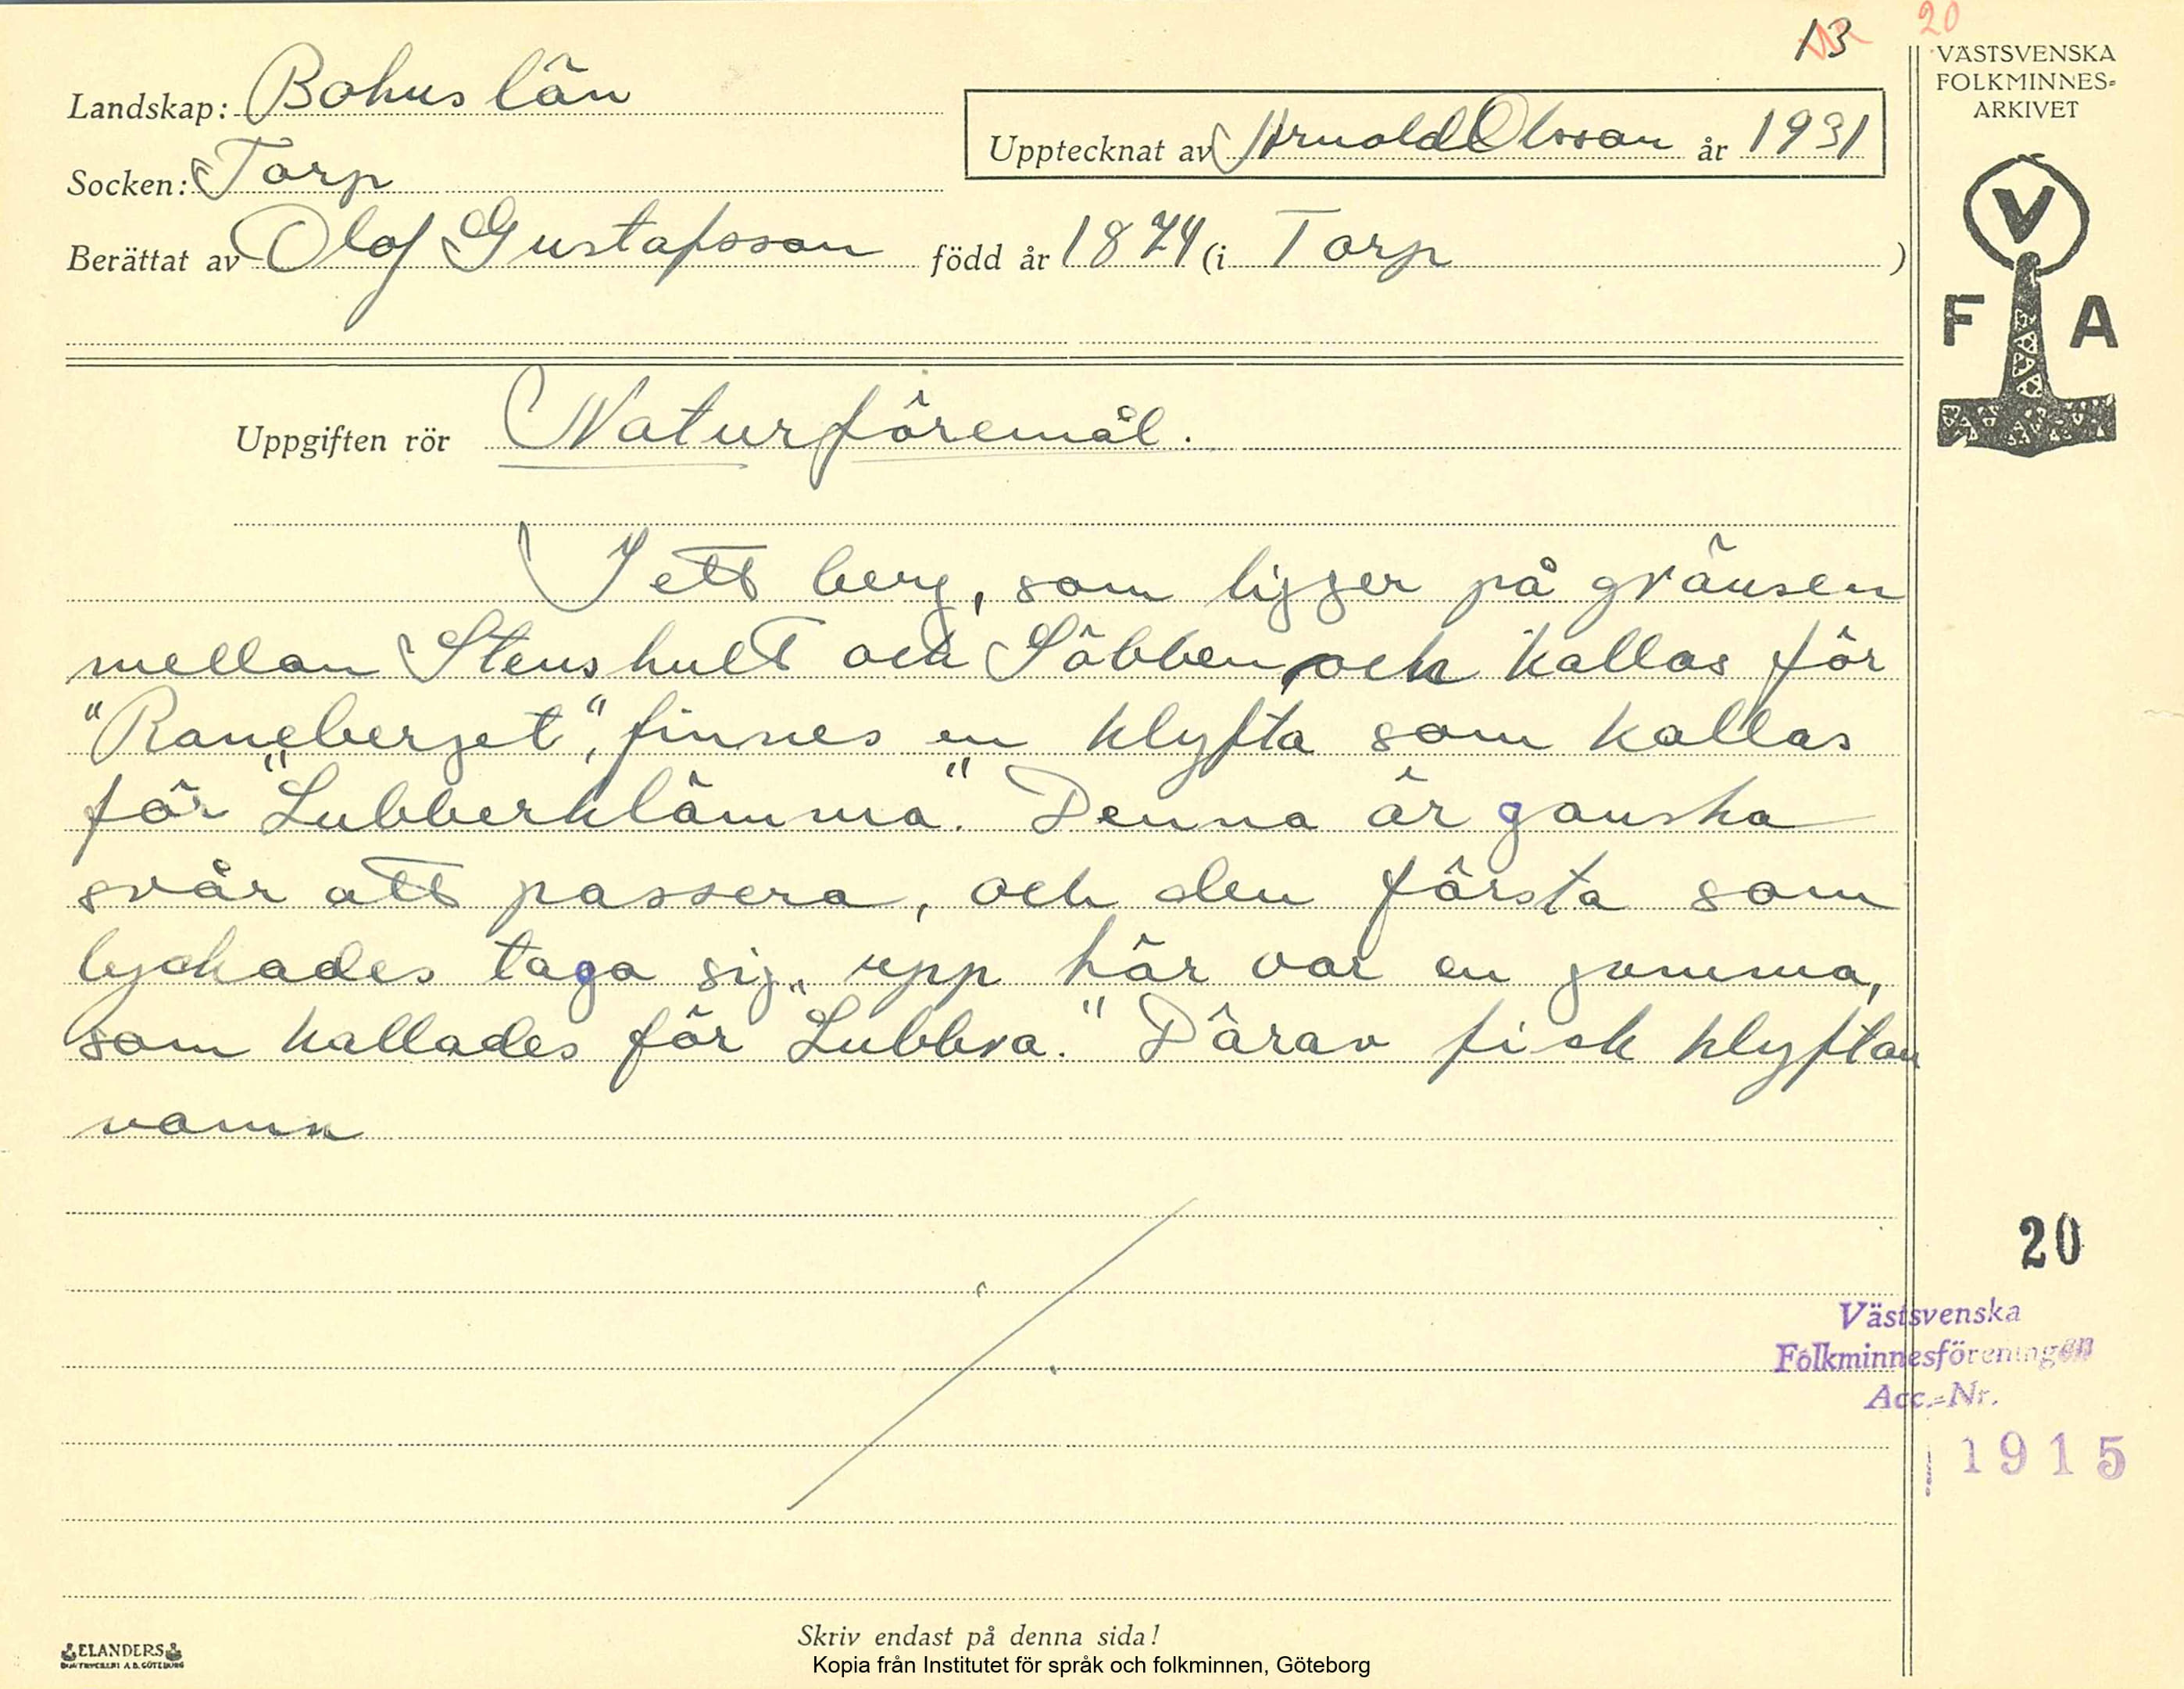 13 20
VÄSTSVENSKA
FOLKMINNES-
ARKIVET
Landskap: Bohuslän
Upptecknat av Arnold Olsson år 1931
Socken: Torp
Berättat av Olof Gustafsson född år 1874 (i Torp )
V
F A
Uppgiften rör Naturföremål.
I ett berg, som ligger på gränsen
mellan Stenshult och Säbben, och kallas för
"Raneberget", finnes en klyfta som kallas
för "Lubberklämma." Denna är ganska
svår att passera, och den första som
lyckades taga sig upp här var en gumma,
som kallades för "Lubbra." Därav fick klyftan
namn
20
Västsvenska
Folkminnesföreningen
Acc.-Nr.
1915
Skriv endast på denna sida!
ELANDERS
BOKTRYCKERI A.B. GÖTEBORG
Kopia från Institutet för språk och folkminnen, Göteborg